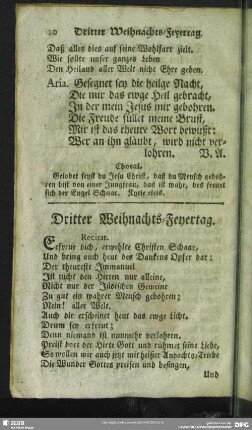 20 Dritter Weihnachts-Feyertag.
Daß alles dies auf seine Wohlfart zielt.
Wie sollte unser ganzes Leben
Den Heiland aller Welt nicht Ehre geben.
Aria. Gesegnet sey die heilge Nacht,
Die mir das ewge Heil gebracht,
In der mein Jesus mir gebohren.
Die Freude füllet meine Brust,
Mir ist das theure Wort bewußt:
Wer an ihn gläubt, wird nicht ver-
lohren. V. A.
Choral.
Gelobet seyst du Jesu Christ, daß du Mensch geboh-
ren bist von einer Jungfrau, das ist wahr, des freuet
sich der Engel Schaar. Kyrie eleis.
Dritter Weihnachts-Feyertag.
Recitat.
Erfreue dich, erwehlte Christen Schaar,
Und bring auch heut des Dankens Opfer dar;
Der theureste Immanuel
Ist nicht den Hirten nur alleine,
Nicht nur der Jüdischen Gemeine
Zu gut ein wahrer Mensch gebohren;
Nein! aller Welt.
Auch dir erscheinet heut das ewge Licht.
Drum sey erfreut;
Denn niemand ist nunmehr verlohren.
Preist dort der Hirte Gott und rühmet seine Liebe,
So wollen wir auch jetzt mit heißer Andachts-Triebe
Die Wunder Gottes preisen und besingen,
Und
SLUB
DFG